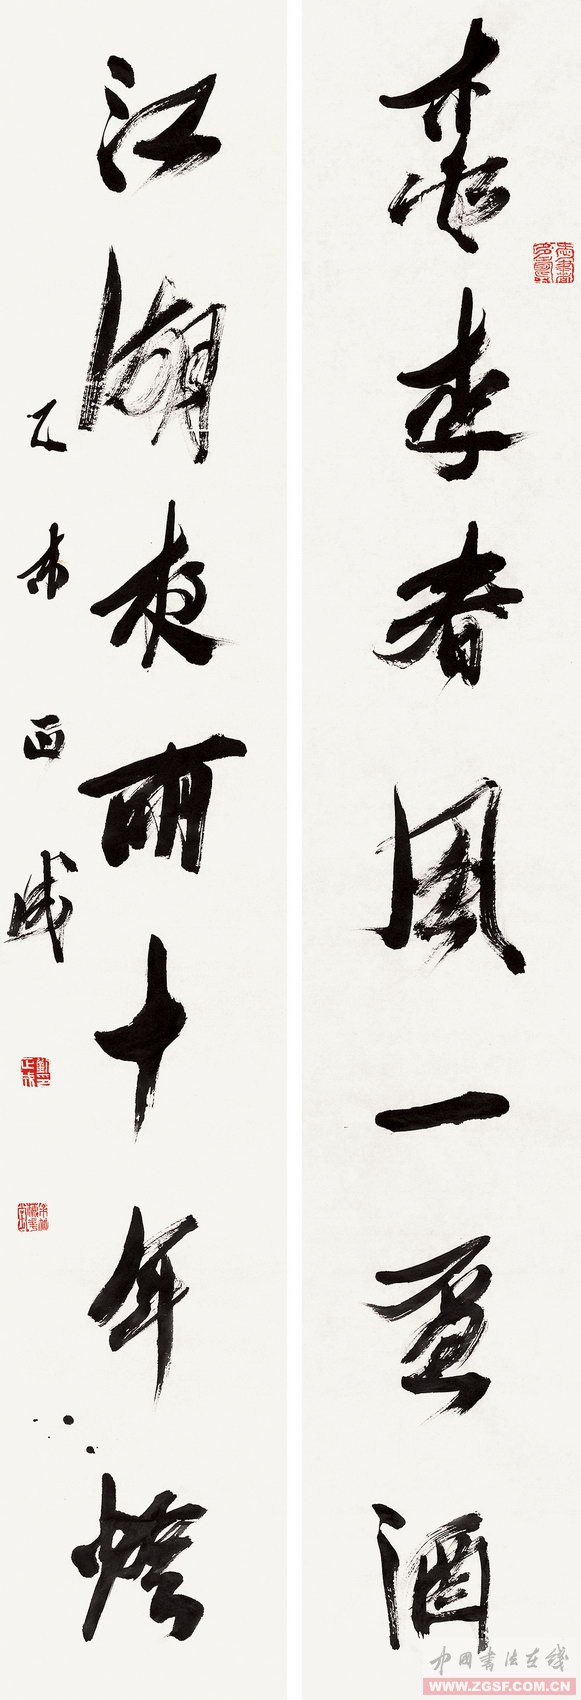 桃李春風一盃酒
江湖夜雨十年燈
乙未 正成
中国书法在线
WWW.ZGSF.COM.CN